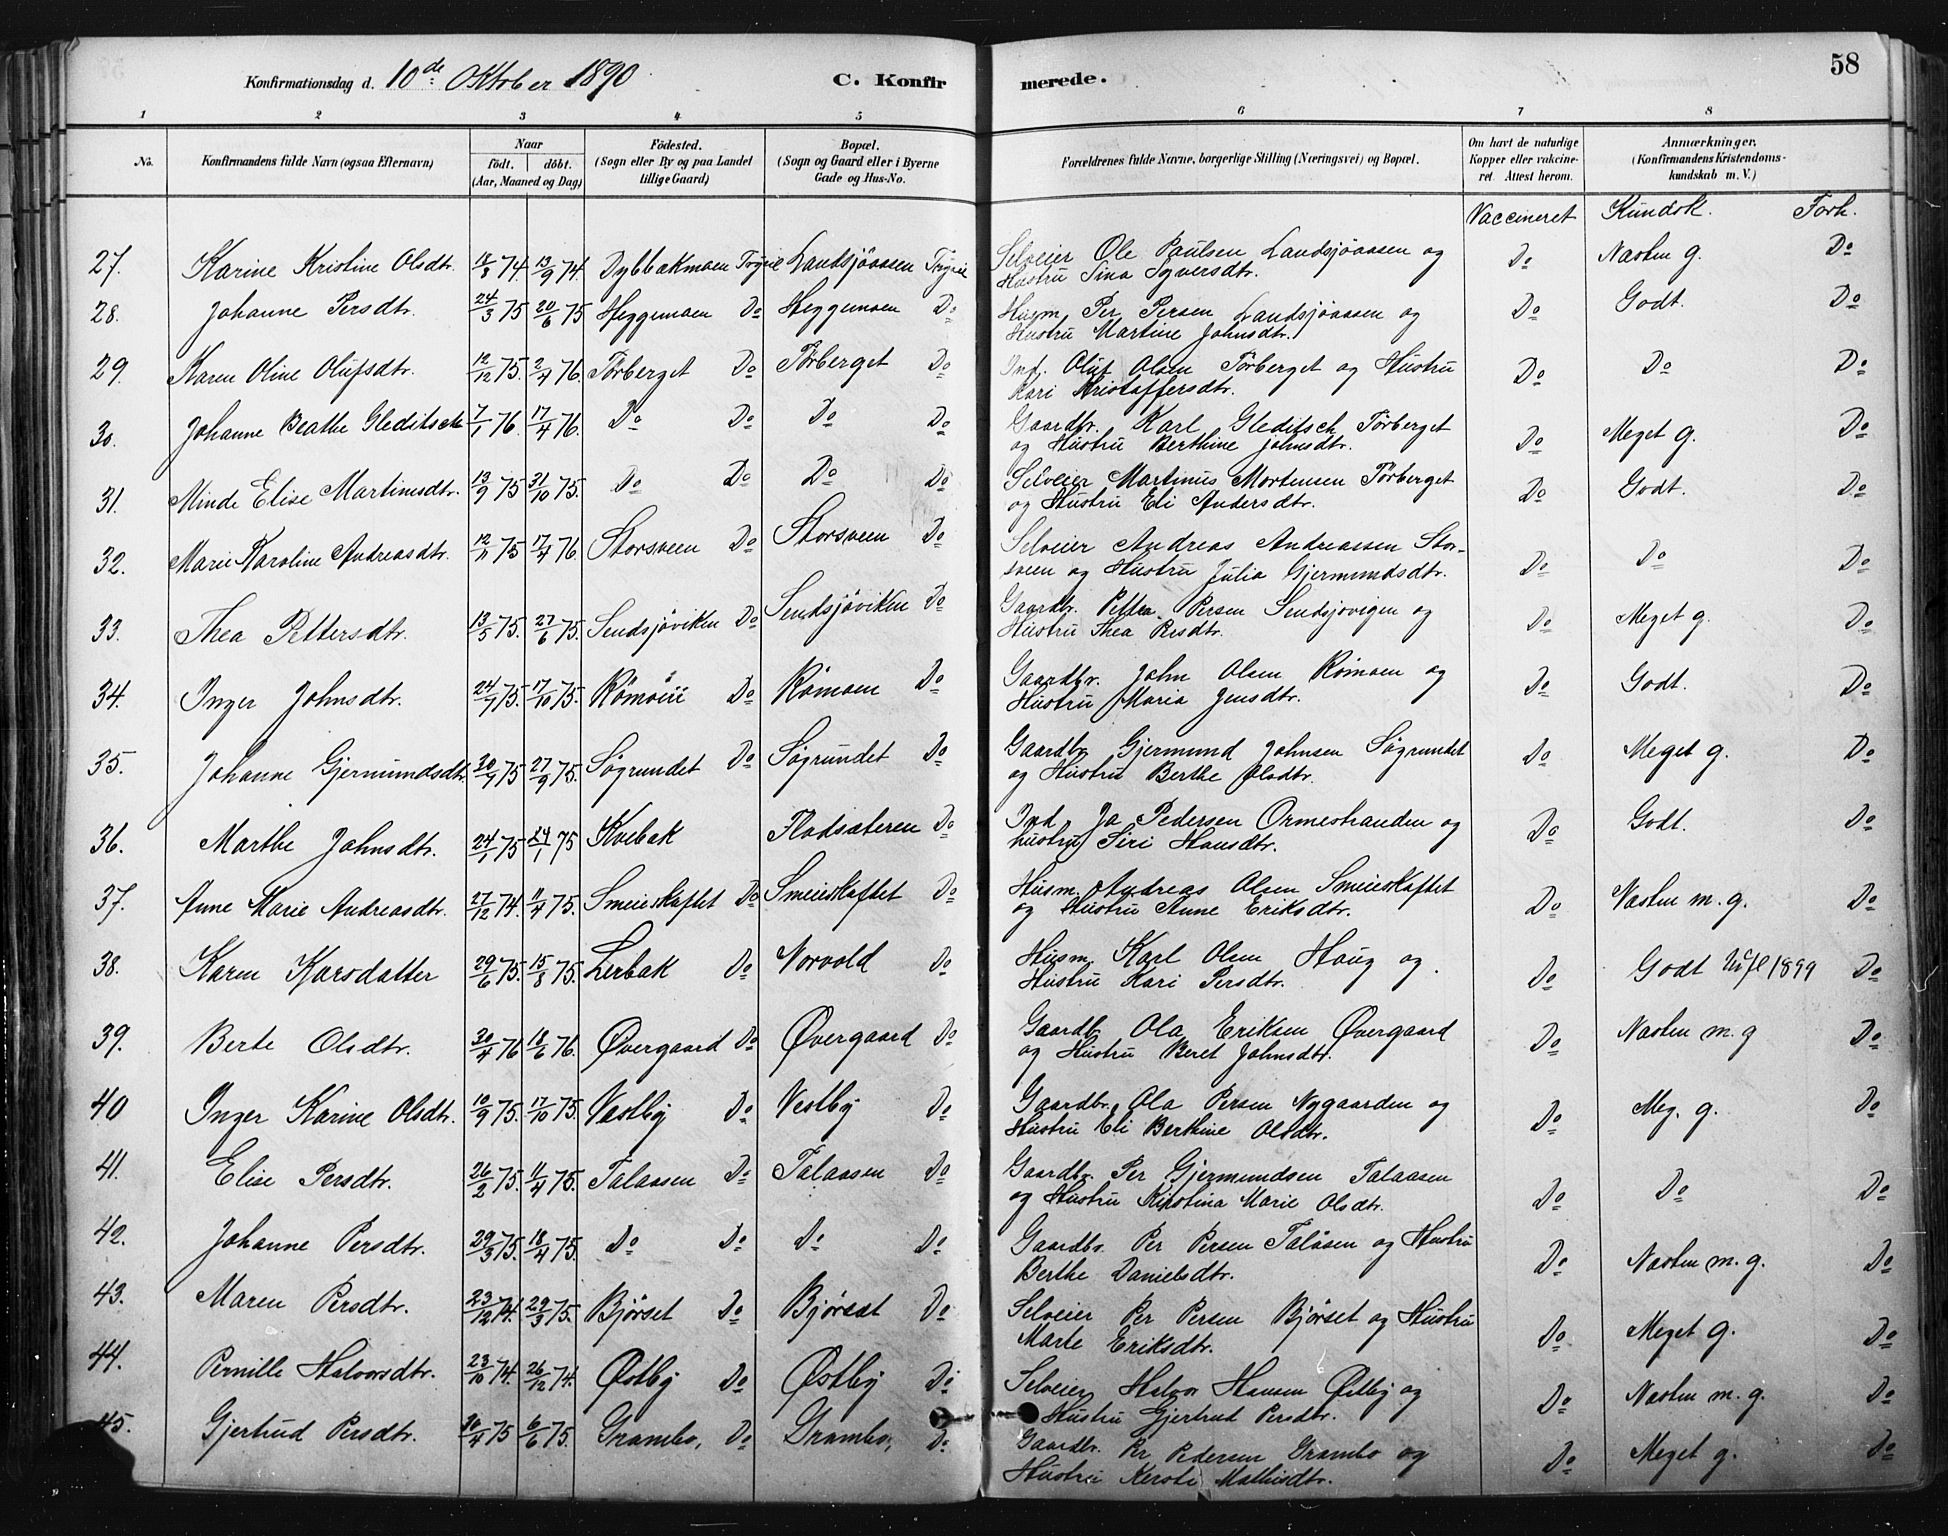 58
Konfirmationsdag d. 10de Oktober 1890 C. Konfirmerede.
1 2 3 4 5 6 7 8
No. Konfirmandens fulde Navn (ogsaa Efternavn) Naar født. døbt. (Aar, Maaned og Dag) Födested. (Sogn eller By og paa Landet tillige Gaard) Bopæl. (Sogn og Gaard eller i Byerne Gade og Hus-No. Forældrenes fulde Navne, borgerlige Stilling (Næringsvei) og Bopæl. Om havt de naturlige Kopper eller vakcineret. Attest herom. Anmærkninger. (Konfirmandens Kristendomskundskab m. V.)
Vaccineret Kundsk. Forh.
27. Karine Kristine Olsdtr. 74. 13/9 74. Dybbakmoen Trysil Landsjöaasen Trysil Selveier Ole Paulsen Landsjöaasen og Do Næsten g. Do
Hustru Sina Syversdtr.
28. Johanne Persdtr. 24/3 75 20/6 75 Heggemoen Do Heggemoen Do Husm. Per Persen Landsjöaasen og Do Godt. Do
Hustru Martine Johnsdtr.
29. Karen Oline Olufsdtr. 12/12 75. 2/4 76. Törberget Do Törberget Do Ind. Oluf Olsen Törberget og Hustru Do Do Do
Kari Kristoffersdtr.
30. Johanne Beathe Gleditsch 7/1 76. 17/4 76. Do Do Do Do Gaardbr. Karl Gleditsch Törberget Do Meget g. Do
og Hustru Berthine Johnsdtr.
31. Minde Elise Martinusdtr. 13/9 75 31/10 75. Do Do Do Do Selveier Martinus Mortensen Törberget Do Godt. Do
og Hustru Eli Andersdtr.
32. Marie Karoline Andreasdtr. 12/11 75 17/4 76. Storsveen Do Storsveen Do Selveier Andreas Andreassen Stor- Do Do Do
sveen og Hustru Julia Gjermundsdtr.
33. Thea Pettersdtr. 13/5 75. 27/6 75. Sendsjöviken Do Sendsjöviken Do Gaardbr. Petter Persen Sendsjovigen og Do Meget g. Do
Hustru Thea Persdtr.
34. Inger Johnsdtr. 75. 17/10 75. Römoen Do Römoen Do Gaardbr. John Olsen Römoen og Do Godt. Do
Hustru Maria Jensdtr.
35. Johanne Gjermundsdtr. 75 27/9 75. Søgrundet Do Søgrundet Do Gaardbr. Gjermund Johnsen Søgrundet Do Meget g. Do
og Hustru Berthe Olsdtr.
36. Marthe Johnsdtr. 24/1 75 75 Kvebak Flodsæteren Do Ind. Jo Pedersen Ormestranden og Do Godt. Do
hustru Siri Hansdtr.
37. Anne Marie Andreasdtr. 27/12 74. 11/4 75. Smeiskaftet Do Smeieskaftet Do Husm. Andreas Olsen Smeieskaftet Do Næsten m. g. Do
og Hustru Anne Eriksdtr.
38. Karen Karsdatter 29/6 75. 15/8 75. Lerbak Do Norvold Do Husm. Karl Olsen Haug og Do Godt 1899 Do
Hustru Kari Persdtr.
39. Berte Olsdtr. 30/4 76 18/6 76. Øvergaard Do Øvergaard Do Gaardb. Ola Eriksen Øvergaard Do Næsten m. g Do
og Hustru Beret Johnsdtr.
40 Inger Karine Olsdtr. 10/9 75. 17/10 75. Vestby Do Vestby Do Gaardbr. Ola Persen Nygaarden og Do Meg. g. Do
Hustru Eli Berthine Olsdtr.
41. Elise Persdtr. 26/2 75. 11/4 75. Talaasen Do Talaasen Do Gaardbr. Per Gjermundsen Talaasen Do Do Do
og Hustru Kristina Marie Olsdtr.
42. Johanne Persdtr. 29/3 75. 18/4 75. Do Do Do Do Gaardbr. Per Persen Talåsen og Hustru Do Næsten m. g. Do
Berthe Danielsdtr.
43. Maren Persdtr. 23/12 74. 29/3 75. Bjørset Do Bjørset Do Selveier Per Persen Bjørset og Hustru Do Meget g. Do
Marte Eriksdtr.
44. Pernille Halvorsdtr. 23/10 74. 26/12 74. Østby Do Østby Do Selveier Halvor Hansen Østby og Do Næsten m. g. Do
Hustru Gjertrud Persdtr.
45. Gjertrud Persdtr. 75 6/6 75. Grambo, Do Grambo, Do Gaardbr. Per Pedersen Grambo og Do Meget g. Do
Hustru Kersti Mathisdtr.